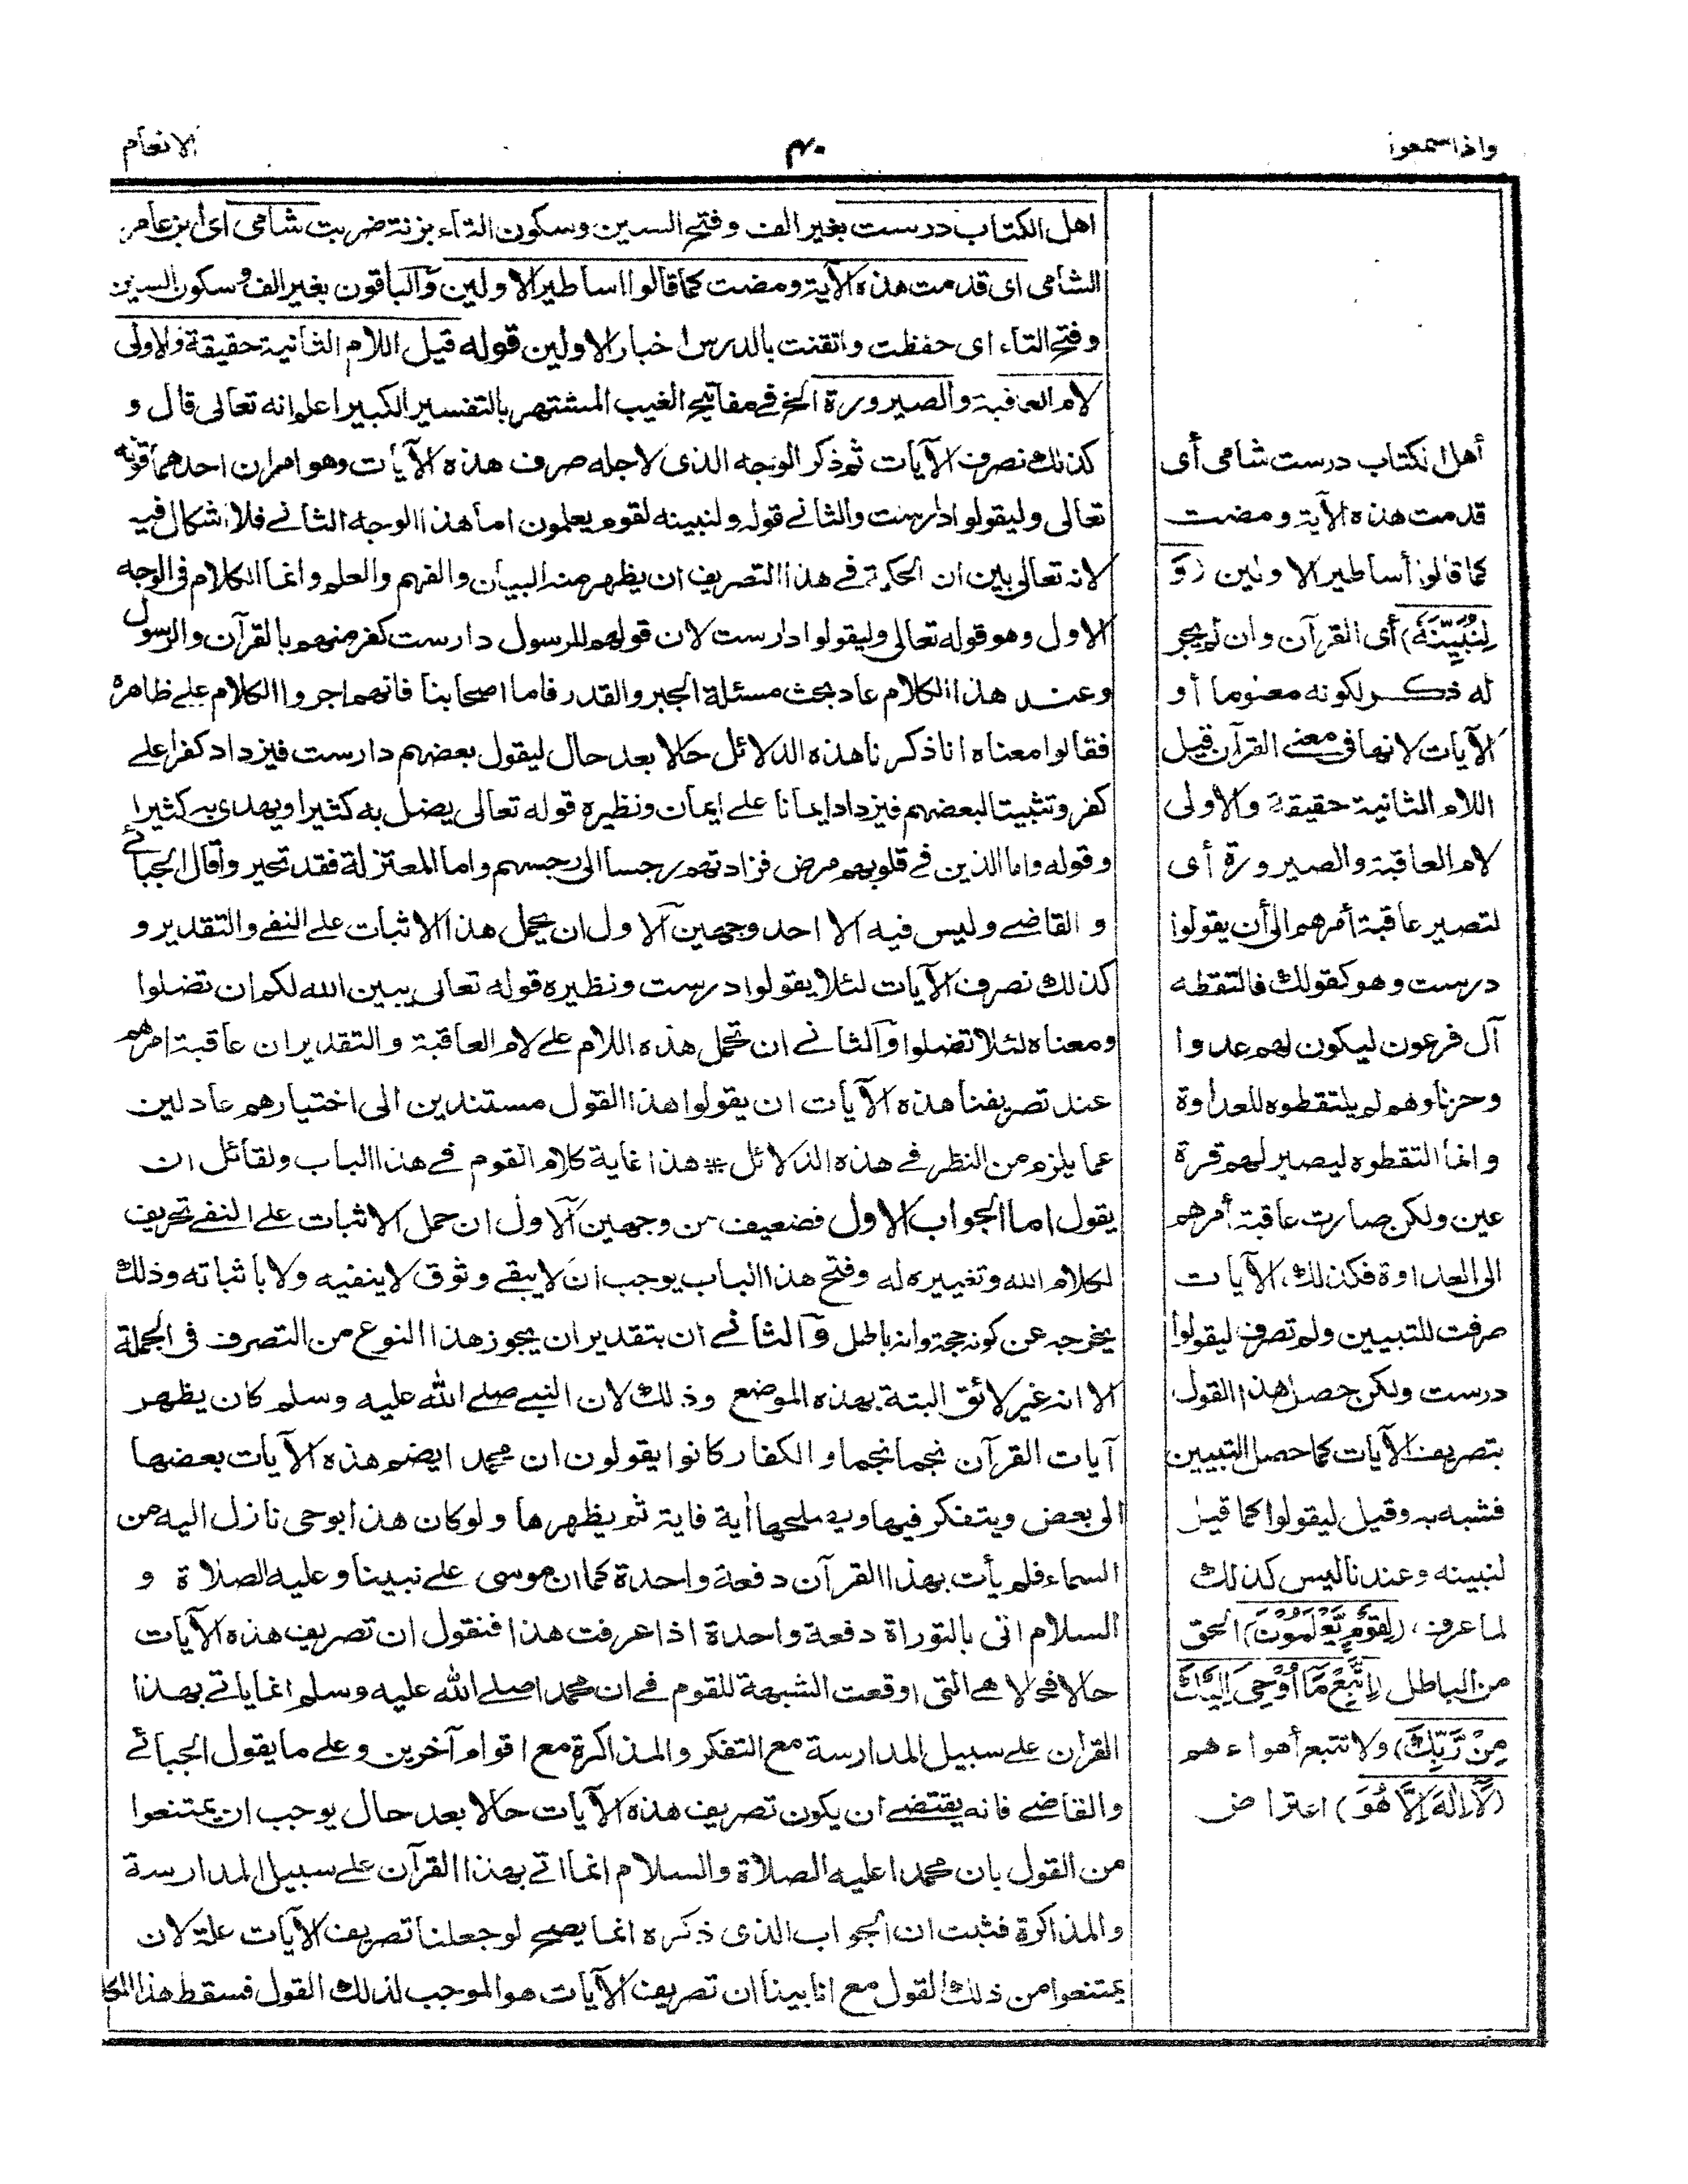 واذا سمعوا
٤٠
الانعام
أهل الكتاب درست شامى أى
قدمت هذه الآية ومضت
كما قالوا أساطير الاولين (وَ
لِنُبَيِّنَهُ) أى القرآن وان لم يجر
له ذكر لكونه معلوما أو
الآيات لانها فى معنى القرآن قيل
اللام الثانية حقيقة والاولى
لام العاقبة والصيرورة أى
لتصير عاقبة أمرهم الى أن يقولوا
درست وهو كقولك فالتقطه
آل فرعون ليكون لهم عدوا
وحزنا وهم لم يلتقطوه للعداوة
وانما التقطوه ليصير لهم قرة
عين ولكن صارت عاقبة أمرهم
الى العداوة فكذلك الآيات
صرفت للتبيين ولم تصرف ليقولوا
درست ولكن حصل هذا القول
بتصريف الآيات كما حصل التبيين
فشبه به وقيل ليقولوا كما قيل
لنبينه وعندنا ليس كذلك
لما عرف (لِقَوْمٍ يَّعْلَمُوْنَ) الحق
من الباطل (اِتَّبِعْ مَا أُوْحِىَ اِلَيْكَ
مِنْ رَّبِّكَ) ولا تتبع أهواءهم
(لَآ اِلٰهَ اِلَّا هُوَ) اعتراض
اهل الكتاب درست بغير الف وفتح السين وسكون التاء بزنة ضربت شامى اى ابن عامر
الشامى اى قدمت هذه الآية ومضت كما قالوا اساطير الاولين والباقون بغير الف وسكون السين
وفتح التاء اى حفظت واتقنت بالدرس اخبار الاولين قوله قيل اللام الثانية حقيقة والاولى
لام العاقبة والصيرورة الخ فے مفاتيح الغيب المشتهر بالتفسير الكبير اعلم انه تعالى قال و
كذلك نصرف الآيات ثم ذكر الوجه الذى لاجله صرف هذه الآيات وهو امران احدهما قوله
تعالى وليقولوا دارست والثانے قوله ولنبينه لقوم يعلمون اما هذا الوجه الثانے فلا اشكال فيه
لانه تعالى بين ان الحكمة فے هذا التصريف ان يظهر منه البيان والفهم والعلم وانما الكلام فى الوجه
الاول وهو قوله تعالى وليقولوا دارست لان قولهم للرسول دارست كفر منهم بالقرآن والرسول
وعند هذا الكلام عاد بحث مسئلة الجبر والقدر فاما اصحابنا فانهم اجروا الكلام علے ظاهره
فقالوا معناه انا ذكرنا هذه الدلائل حالا بعد حال ليقول بعضهم دارست فيزداد كفرا علے
كفر وتثبيتا لبعضهم فيزداد ايمانا علے ايمان ونظيره قوله تعالى يضل به كثيرا ويهدى به كثيرا
وقوله واما الذين فے قلوبهم مرض فزادتهم رجسا الى رجسهم واما المعتزلة فقد تحير وا قال الجبائے
و القاضے وليس فيه الا احد وجهين الاول ان يحمل هذا الاثبات علے النفے والتقدير و
كذلك نصرف الآيات لئلا يقولوا درست ونظيره قوله تعالى يبين الله لكم ان تضلوا
ومعناه لئلا تضلوا والثانے ان تحمل هذه اللام علے لام العاقبة والتقدير ان عاقبة امرهم
عند تصريفنا هذه الآيات ان يقولوا هذا القول مستندين الى اختيارهم عادلين
عما يلزم من النظر فے هذه الدلائل # هذا غاية كلام القوم فے هذا الباب ولقائل ان
يقول اما الجواب الاول فضعيف من وجهين الاول ان حمل الاثبات علے النفے تحريف
لكلام الله وتغييره له وفتح هذا الباب يوجب ان لا يبقے وثوق لا بنفيه ولا باثباته وذلك
يخرجه عن كونه حجة وانه باطل والثانے ان بتقدير ان يجوز هذا النوع من التصرف فى الجملة
الا انه غير لائق البتة بهذه الموضع وذلك لان النبے صلے الله عليه وسلم كان يظهر
آيات القرآن نجما نجما و الكفار كانوا يقولون ان محمدا يضم هذه الآيات بعضها
الى بعض ويتفكر فيها ويصلحها أية فاية ثم يظهرها ولو كان هذا بوحى نازل اليه من
السماء فلم يأت بهذا القرآن دفعة واحدة كما ان موسى علے نبينا وعليه الصلاة و
السلام اتى بالتوراة دفعة واحدة اذا عرفت هذا فنقول ان تصريف هذه الآيات
حالا فحالا هے التى اوقعت الشبهة للقوم فے ان محمدا صلے الله عليه وسلم انما ياتے بهذا
القرآن علے سبيل المدارسة مع التفكر والمذاكرة مع اقوام آخرين وعلے ما يقول الجبائے
والقاضے فانه يقتضے ان يكون تصريف هذه الآيات حالا بعد حال يوجب ان يمتنعوا
من القول بان محمدا عليه الصلاة والسلام انما اتے بهذا القرآن علے سبيل المدارسة
والمذاكرة فثبت ان الجواب الذى ذكره انما يصح لو جعلنا تصريف الآيات علة لان
يمتنعوا من ذلك القول مع انا بينا ان تصريف الآيات هو الموجب لذلك القول فسقط هذا